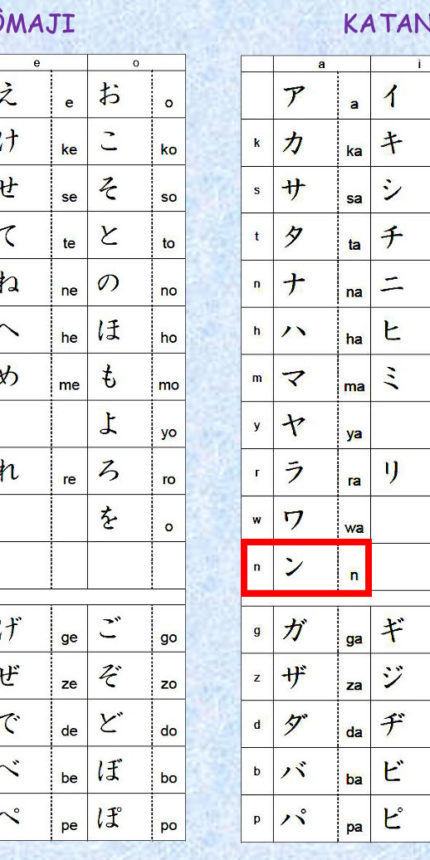 ÔMAJI KATAN
e o
え e お o
け ke こ ko
せ se そ so
て te と to
ね ne の no
へ he ほ ho
め me も mo
よ yo
れ re ろ ro
を o
げ ge ご go
ぜ ze ぞ zo
で de ど do
べ be ぼ bo
ぺ pe ぽ po
a i
ア a イ
k カ ka キ
s サ sa シ
t タ ta チ
n ナ na ニ
h ハ ha ヒ
m マ ma ミ
y ヤ ya
r ラ ra リ
w ワ wa
n ン n
g ガ ga ギ
z ザ za ジ
d ダ da ヂ
b バ ba ビ
p パ pa ピ